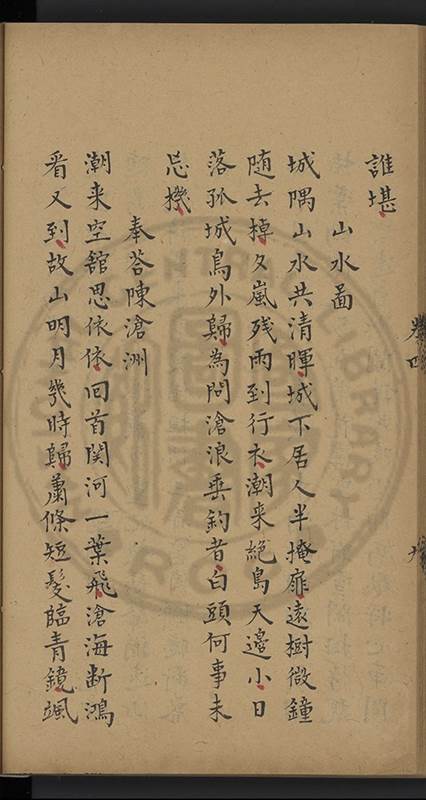 誰堪
山水畵
城隅山水共清暉城下居人半掩扉遠樹微鐘
随去棹夕嵐残雨到行衣潮来絶島天邊小日
落孤城鳥外歸為問滄浪垂釣者白頭何事未
忘機
奉荅陳滄洲
潮来空舘思依依回首関河一葉飛滄海断鴻
看又到故山明月幾時歸蕭條短髮臨青鏡颯
卷四